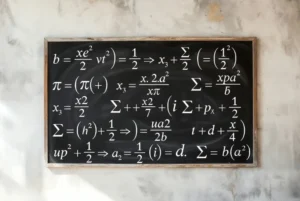 b = xe²/2 vt²) = 1/2 ⇒ x₂ + Σ/2 (= (1²/2)
π = (π(+) x₃ = x.2.a²/xπ Σ = xpa²/b
x₃ = x2/2 Σ++ x²/7 + (i Σ + p₈ + 1/2
Σ = (h²) + 1/2 ⇒) = ua2/2b t + d + x/4)
up² + 1/2 ⇒ a₂ = 1/2 (i) = d. Σ = b(a²)